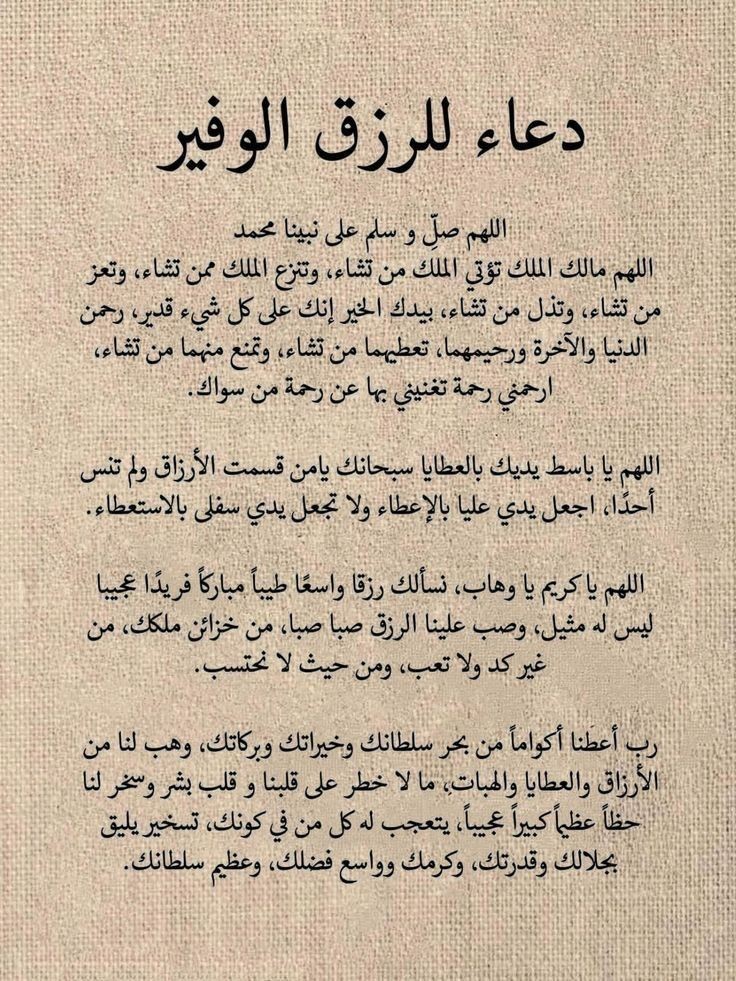 دعاء للرزق الوفير
اللهم صلِّ و سلم على نبينا محمد
اللهم مالك الملك تؤتي الملك من تشاء، وتنزع الملك ممن تشاء، وتعز
من تشاء، وتذل من تشاء، بيدك الخير إنك على كل شيء قدير، رحمن
الدنيا والآخرة ورحيمهما، تعطيهما من تشاء، وتمنع منهما من تشاء،
ارحمني رحمة تغنيني بها عن رحمة من سواك.
اللهم يا باسط يديك بالعطايا سبحانك يامن قسمت الأرزاق ولم تنس
أحدًا، اجعل يدي عليا بالإعطاء ولا تجعل يدي سفلى بالاستعطاء.
اللهم يا كريم يا وهاب، نسألك رزقا واسعًا طيباً مباركاً فريدًا عجيبا
ليس له مثيل، وصب علينا الرزق صبا صبا، من خزائن ملكك، من
غير كد ولا تعب، ومن حيث لا نحتسب.
رب أعطَنا أكواماً من بحر سلطانك وخيراتك وبركاتك، وهب لنا من
الأرزاق والعطايا والهباتِ، ما لا خطر على قلبنا و قلب بشر وسخر لنا
حظاً عظيماً كبيراً عجيباً، يتعجب له كل من في كونك، تسخير يليق
بجلالك وقدرتك، وكرمك وواسع فضلك، وعظيم سلطانك.